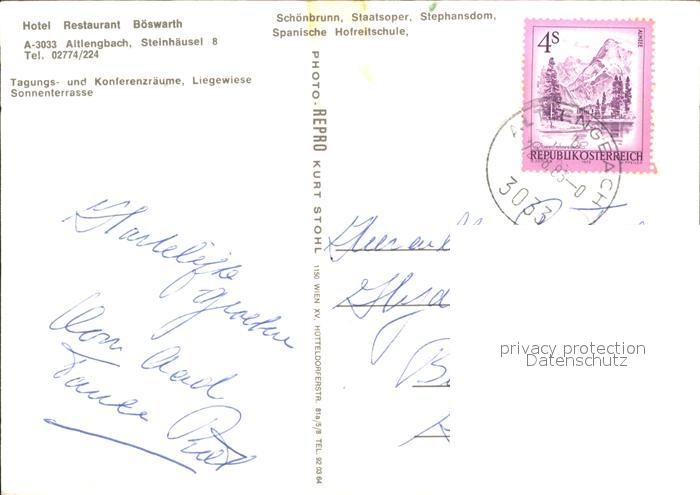 Hotel Restaurant Böswarth
A-3033 Altlengbach, Steinhäusel 8
Tel. 02774/224
Tagungs- und Konferenzräume, Liegewiese
Sonnenterrasse
Schönbrunn, Staatsoper, Stephansdom,
Spanische Hofreitschule,
PHOTO-REPRO KURT STOHL 1150 WIEN XV, HÜTTELDORFERSTR. 81a/5/8 TEL. 92 03 64
4S
ALMSEE
REPUBLIK ÖSTERREICH
ALTLENGBACH
3033
Hartelijke
groeten
van Aad
Tante Riet
privacy protection
Datenschutz